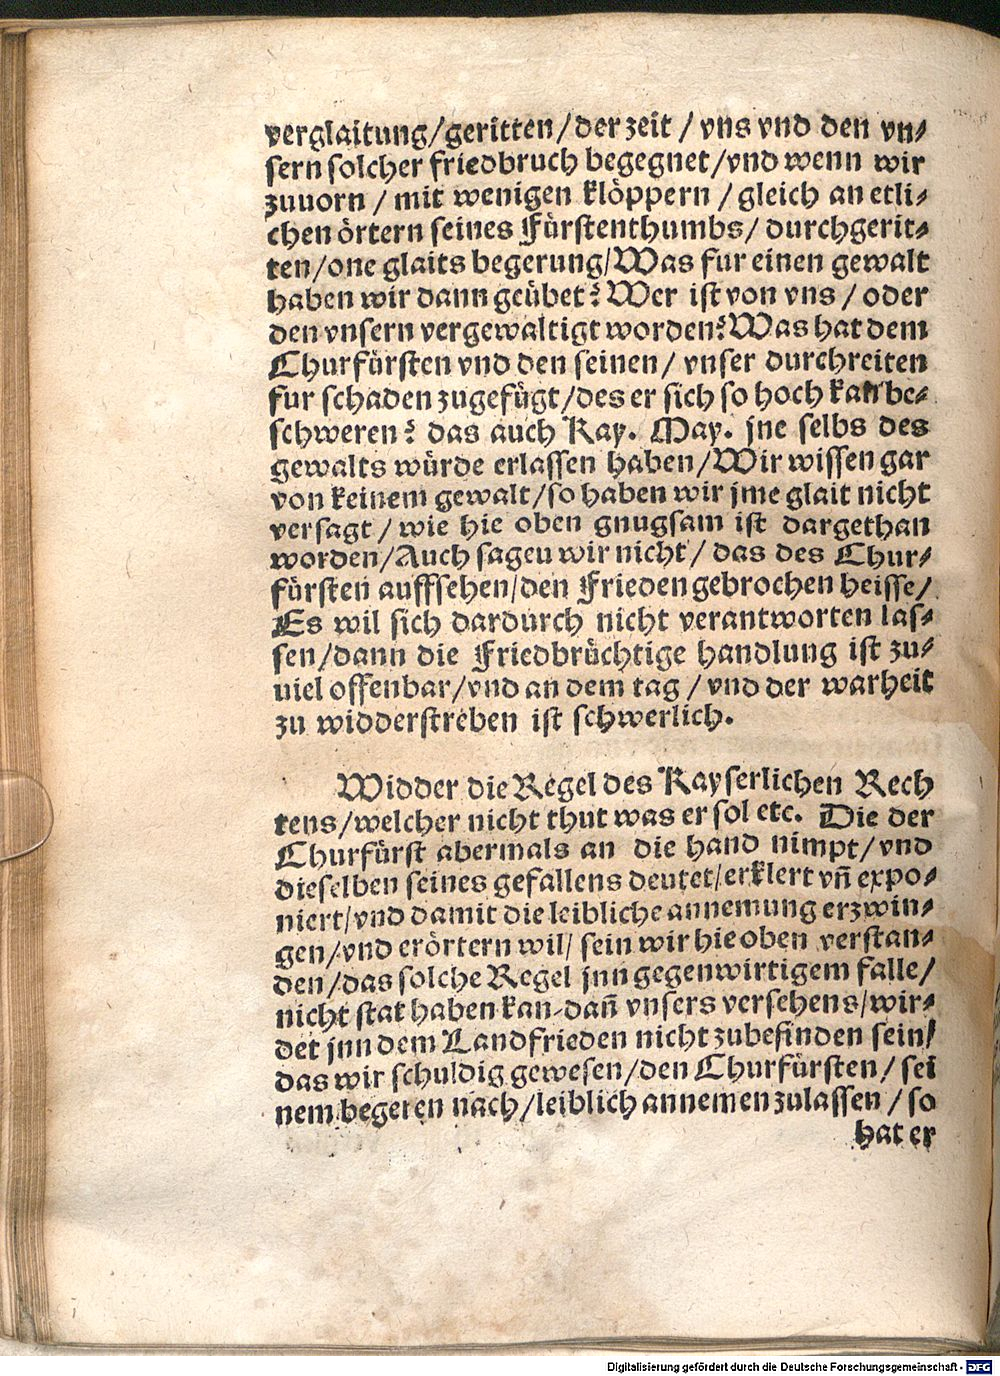 verglaitung/geritten/der zeit / vns vnd den vn⸗
sern solcher friedbruch begegnet/vnd wenn wir
zuuorn / mit wenigen klöppern / gleich an etli⸗
chen örtern seines Fürstenthumbs/ durchgerit⸗
ten/one glaits begerung/Was fur einen gewalt
haben wir dann geübet? Wer ist von vns / oder
den vnsern vergewaltigt worden? Was hat dem
Churfürsten vnd den seinen/ vnser durchreiten
fur schaden zugefügt/des er sich so hoch kan be⸗
schweren? das auch Kay. May. jne selbs des
gewalts würde erlassen haben/Wir wissen gar
von keinem gewalt/so haben wir jme glait nicht
versagt / wie hie oben gnugsam ist dargethan
worden/Auch sageu wir nicht/ das des Chur⸗
fürsten auffsehen/den Frieden gebrochen heisse/
Es wil sich dardurch nicht verantworten las⸗
sen/dann die Friedbrüchtige handlung ist zu⸗
uiel offenbar/vnd an dem tag / vnd der warheit
zu widderstreben ist schwerlich.
Widder die Regel des Kayserlichen Rech
tens/welcher nicht thut was er sol etc. Die der
Churfürst abermals an die hand nimpt/vnd
dieselben seines gefallens deutet/erklert vñ expo⸗
niert/vnd damit die leibliche annemung erzwin⸗
gen/vnd erörtern wil/ sein wir hie oben verstan⸗
den/das solche Regel jnn gegenwirtigem falle/
nicht stat haben kan-dañ vnsers versehens/wir⸗
det jnn dem Landfrieden nicht zubefinden sein/
das wir schuldig gewesen/den Churfürsten/ sei
nem begeren nach/leiblich annemen zulassen / so
hat er
Digitalisierung gefördert durch die Deutsche Forschungsgemeinschaft - DFG